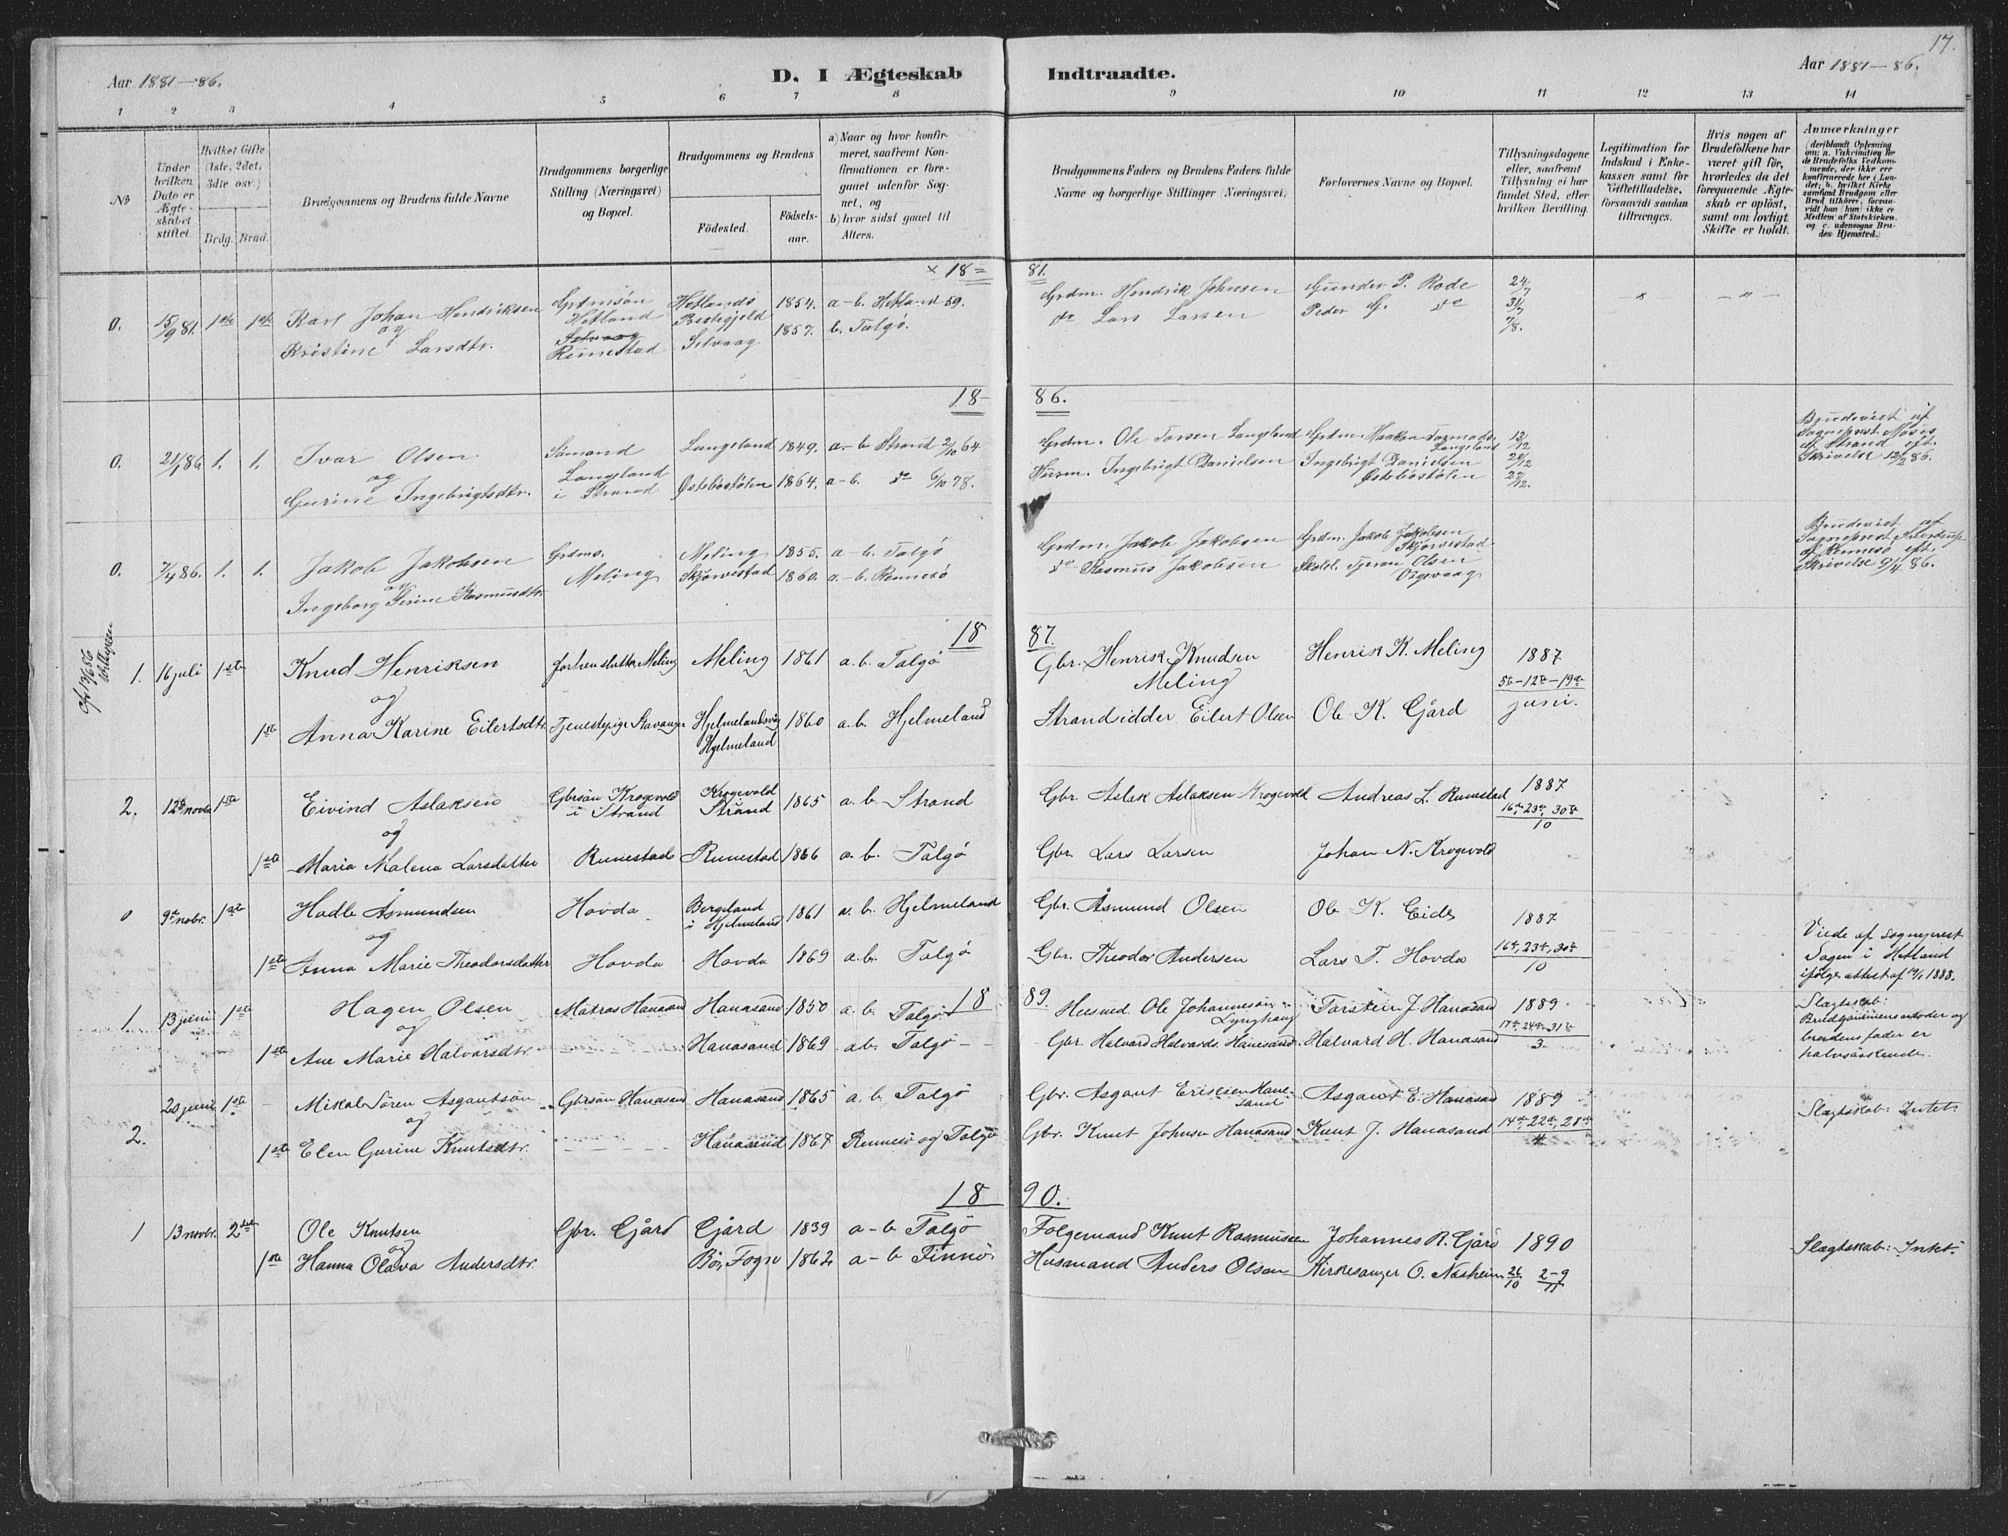 17.
Aar 1881–86.
D. I Ægteskab Indtraadte.
Aar 1881–86.
1 2 3 4 5 6 7 8 9 10 11 12 13 14
No
Under hvilken Dato er Ægteskabet stiftet.
Hvilket Gifte (1ste, 2det, 3die osv.)
Brdg. Brud.
Brudgommens og Brudens fulde Navne
Brudgommens borgerlige Stilling (Næringsvei) og Bopæl.
Brudgommens og Brudens
Fødested.
Fødselsaar.
a) Naar og hvor konfirmeret, saafremt Konfirmationen er foregaaet udenfor Sognet, og
b) hvor sidst gaaet til Alters.
Brudgommens Faders og Brudens Faders fulde Navne og borgerlige Stillinger (Næringsvei.)
Forlovernes Navne og Bopæl.
Tillysningsdagene eller, saafremt Tillysning ei har fundet Sted, efter hvilken Bevilling.
Legitimation for Indskud i Enkekassen samt for Giftetilladelse, forsaavidt saadan tiltrænges.
Hvis nogen af Brudefolkene har været gift før, hvorledes da det foregaaende Ægteskab er opløst, samt om lovligt Skifte er holdt.
Anmærkninger
× 18= 81.
0. 15/9 81. 1ste 1ste Karl Johan Hendriksen Grdmsøn Hetland Hetlands Prestegjeld 1854. a-b. Hetland 59. Grdm. Hendrik Johnsen Gunder P. Rode 24/7
og
Kristine Larsdtr. Selvaag Runestad Selvaag 1857. b. Talgø. do Lars Larsen Peder G. do 31/7 7/8.
18– 86.
0. 21/1 86. 1. 1. Ivar Olsen Sømand Langeland i Strand Langeland 1849. a-b Strand 2/10 64 Grdm. Ole Torsen Langland Grdm. Haaken Tormods. Langeland 13/12 20/12 27/12.
og
Gurine Ingebrigtsdtr. Østebøstølen 1864. a-b. do 6/10 78. Husm. Ingebrigt Danielsen Ingebrigt Danielsen Østebøstølen
Brudeviet af Sogneprest Moses af Strand eft. Skrivelse 12/2 86.
0. 7/4 86. 1. 1. Jakob Jakobsen Grdms. Meling Meling 1855. a-b. Talgø Grdm. Jakob Jakobsen Grdm. Jakob Jakobsen Skjørvestad
og
Ingeborg Serine Rasmusdtr. Skjørvestad 1860. a-b. Rennesø do Rasmus Jakobsen Skold. Tjeran Olsen Vigevaag
Brudeviet af Sogneprest af Rennesø eft. Skrivelse 9/4 86.
18 87.
1. 16 juli 1ste Knud Henriksen Meling Meling 1861 a. b. Talgø Gbr. Henrik Knudsen Meling Henrik K. Meling 1887
og 5te–12te–19de juni.
1ste Anna Karine Eilertsdtr. Tjenestepige Stavanger Hjelmelandsvåg Hjelmeland 1860 a. b. Hjelmeland Strandsidder Eilert Olsen Ole K. Gård
2. 12te novbr 1ste Eivind Aslaksen Gbrsøn Krogevold i Strand Krogevold Strand 1865 a. b. Strand Gbr. Aslak Aslaksen Krogevold Andreas L. Runestad 1887
og 16de, 23de, 30te 10
1ste Maria Malena Larsdatter Runestad Runestad 1866 a. b. Talgø Gbr. Lars Larsen Johan N. Krogevold
0 9de nobr. 1ste Hadle Åsmundsen Hovda Bergeland i Hjelmeland 1861 a. b. Hjelmeland Gbr. Åsmund Olsen Ole K. Eide 1887
og 16de, 23de, 30te 10
1ste Anna Marie Theodorsdatter Hovda Hovda 1869 a. b. Talgø Gbr. Theodor Andersen Lars T. Hovda
Viede af Sogneprest i Hetland ifølge attest af 1888.
18 89.
1. 13 juni 1ste Hagen Olsen Matros Hanasand Hanasand 1850 a. b Talgø Husmd Ole Johannesøn Lynghaug Torstein J. Hanasand 1889
og 17de, 24de, 31te 3.
1ste Ane Marie Halvorsdtr. Hanasand 1869 a b. Talgø Gbr. Halvard Halvards. Hanasand. Halvard H. Hanasand
Slægtskab: Brudgommens moder og brudens fader er halvsøskende.
2. juni 1ste Mikal Søren Asgautsøn Gbrsøn Hanasand Hanasand 1865 a. b Talgø Gbr. Asgaut Eriksen Hanesand Asgaut E. Hanasand 1889
og 14de, 22de, 28de 4
1ste Elen Gurine Knutsdtr. Hanasand 1867 Rennesø og Talgø Gbr. Knut Johnsen Hanasand Knut J. Hanasand
Slægtskab: Intet
18 90.
1 13 novbr. 2det Ole Knutsen Gbr. Gjård Gjård 1839 a – b Talgø Folgemand Knut Rasmussen Johannes R. Gjård 1890
og 26/10 2–9/11
1ste Hanna Olava Andersdtr. Bø, Fogn 1862 a – b Finnø Husmand Anders Olsen Kirkesanger O. Næsheim
Slægtskab: Intet.